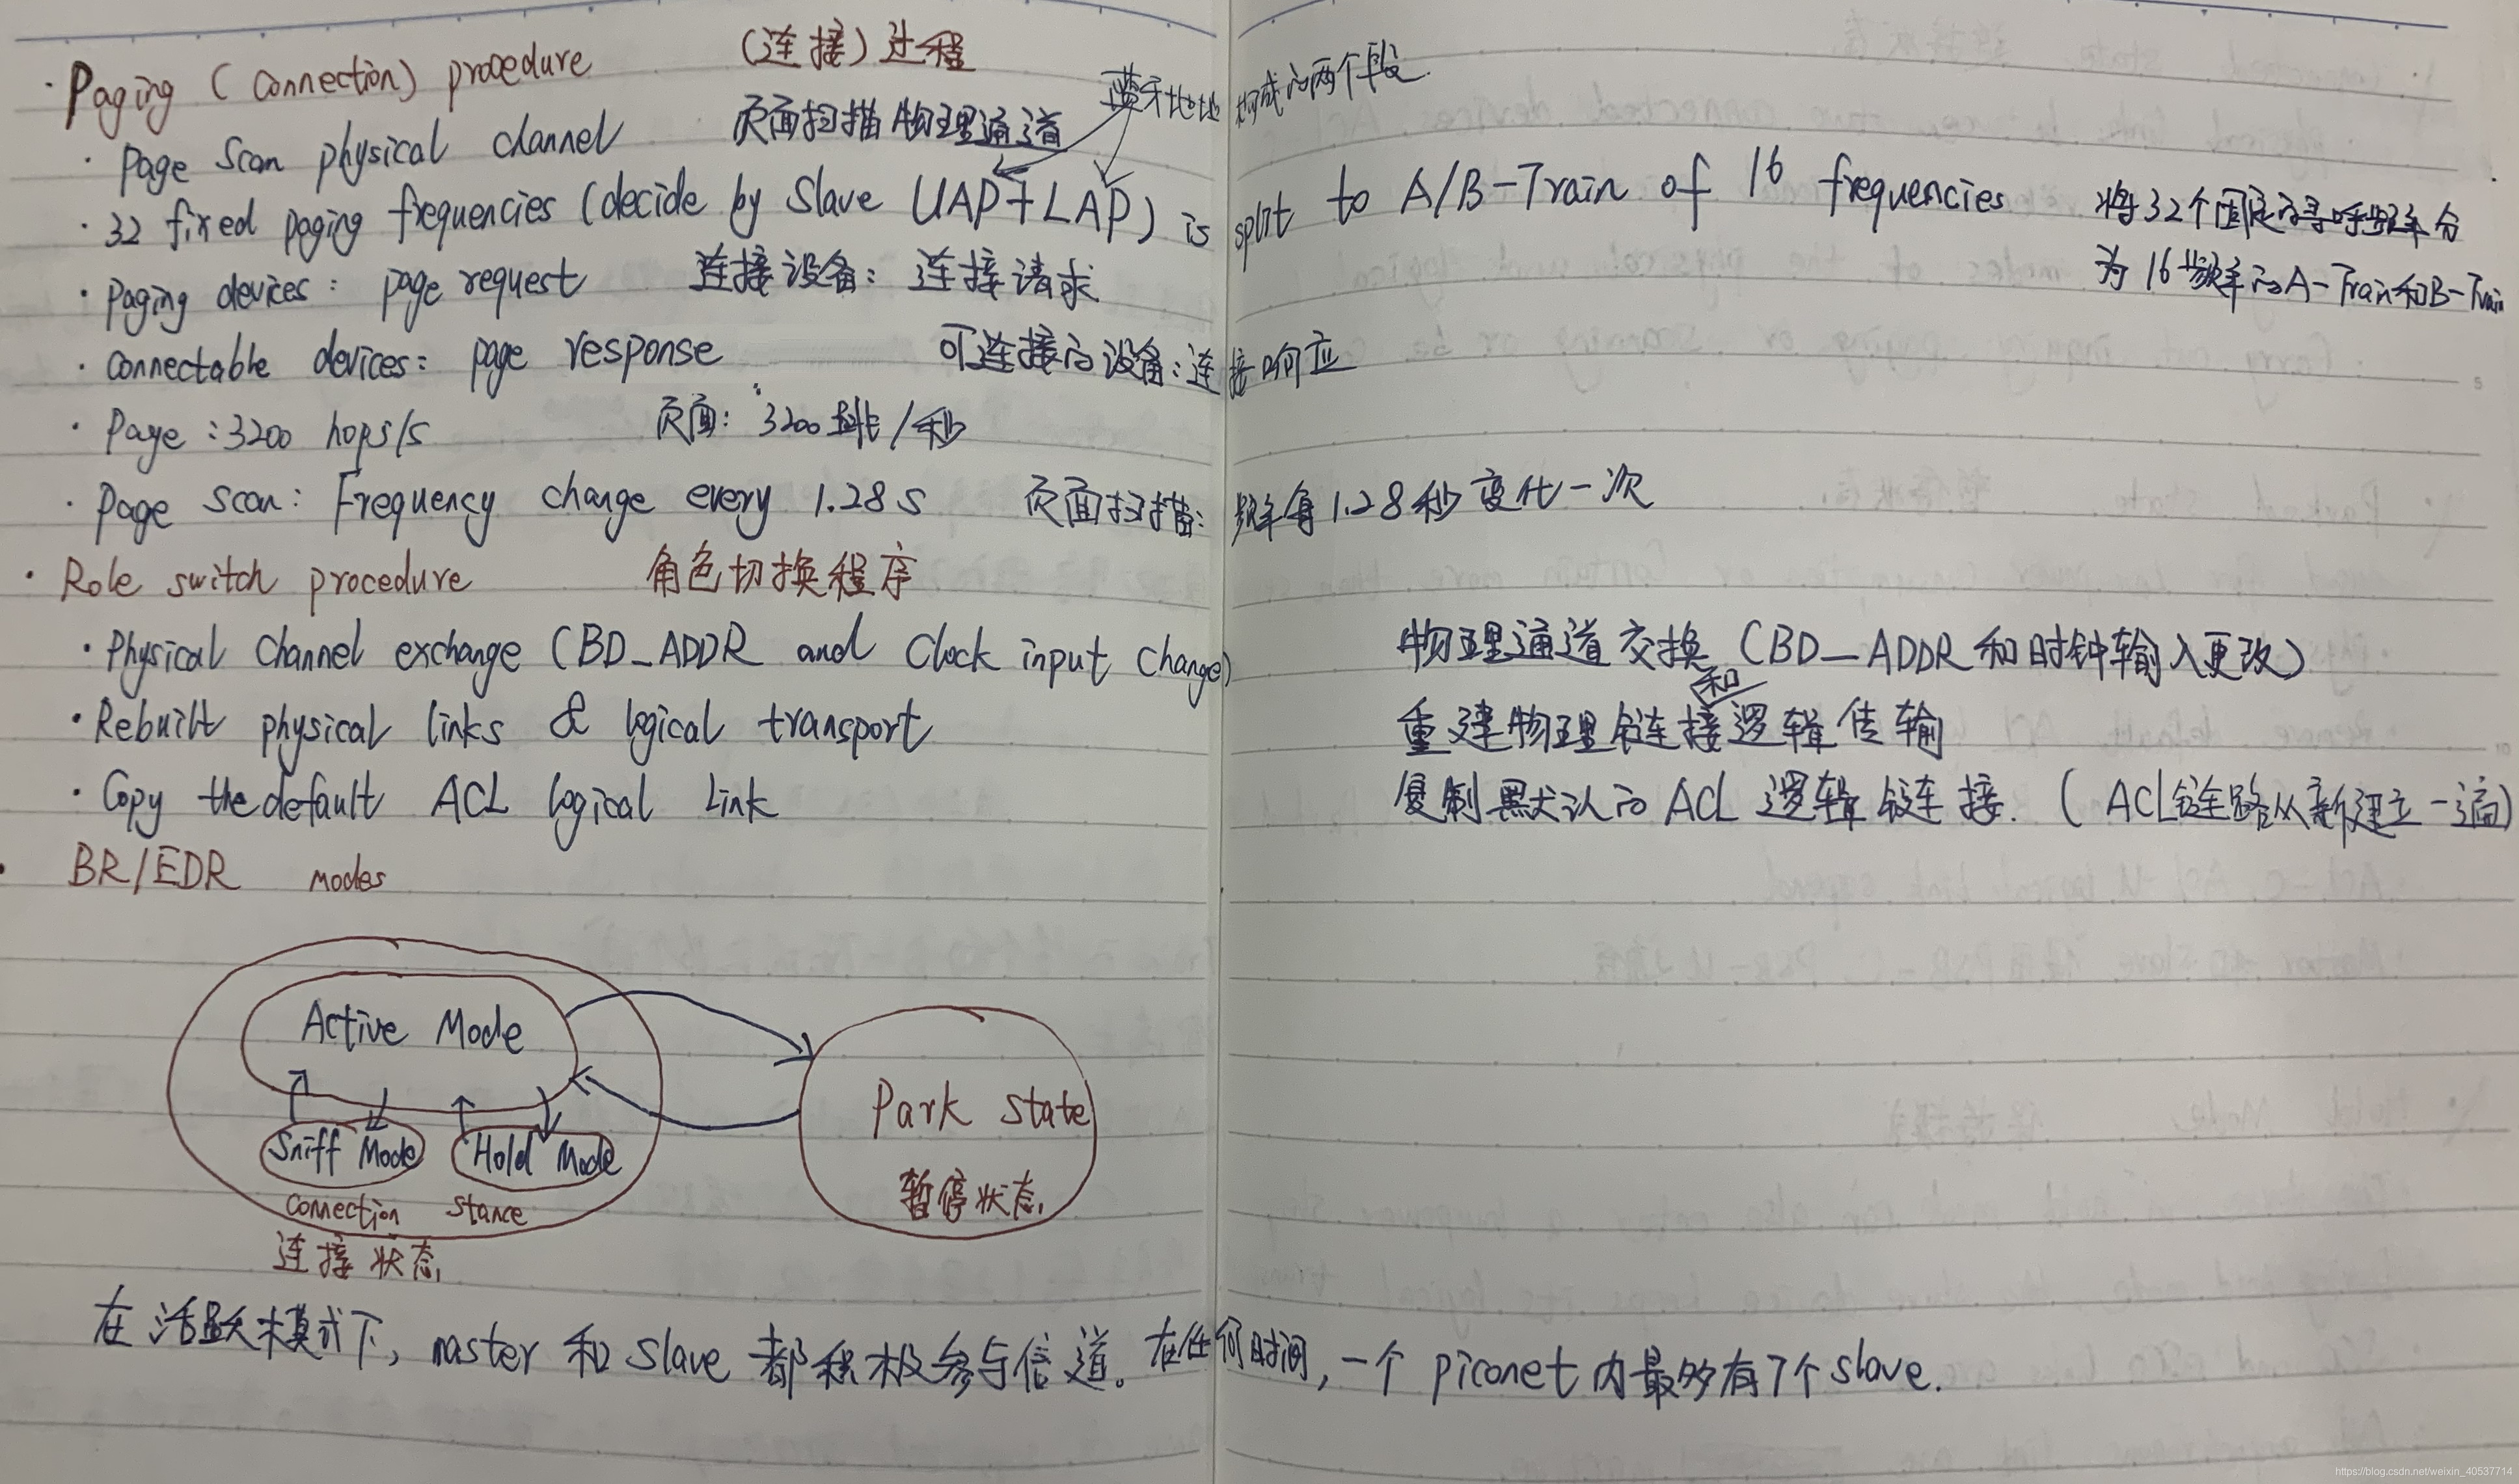 · Paging (Connection) procedure (连接)过程
蓝牙地址构成的两个段.
· Page Scan physical channel 页面扫描物理通道
· 32 fixed paging frequencies (decide by Slave UAP+LAP) is split to A/B-Train of 16 frequencies 将32个固定的寻呼频率分
为16频率的A-Train和B-Train
· Paging devices: page request 连接设备: 连接请求
· Connectable devices: page response 可连接的设备:连接响应
· Page:3200 hops/s 页面: 3200跳/秒
· Page Scan: Frequency change every 1.28s 页面扫描: 频率每1.28秒变化一次
· Role switch procedure 角色切换程序
· Physical Channel exchange (BD_ADDR and Clock input Change) 物理通道交换 (BD_ADDR和时钟输入更改)
和
· Rebuilt physical links & logical transport 重建物理链接逻辑传输
· Copy the default ACL logical Link 复制默认的ACL逻辑链接. (ACL链路从新建立一遍)
· BR/EDR modes
Active Mode
Sniff Mode Hold Mode
Connection Stance
连接状态
Park State
暂停状态
在活跃模式下, master和slave都积极参与信道。在任何时间, 一个piconet内最多有7个slave.
https://blog.csdn.net/weixin_40537714